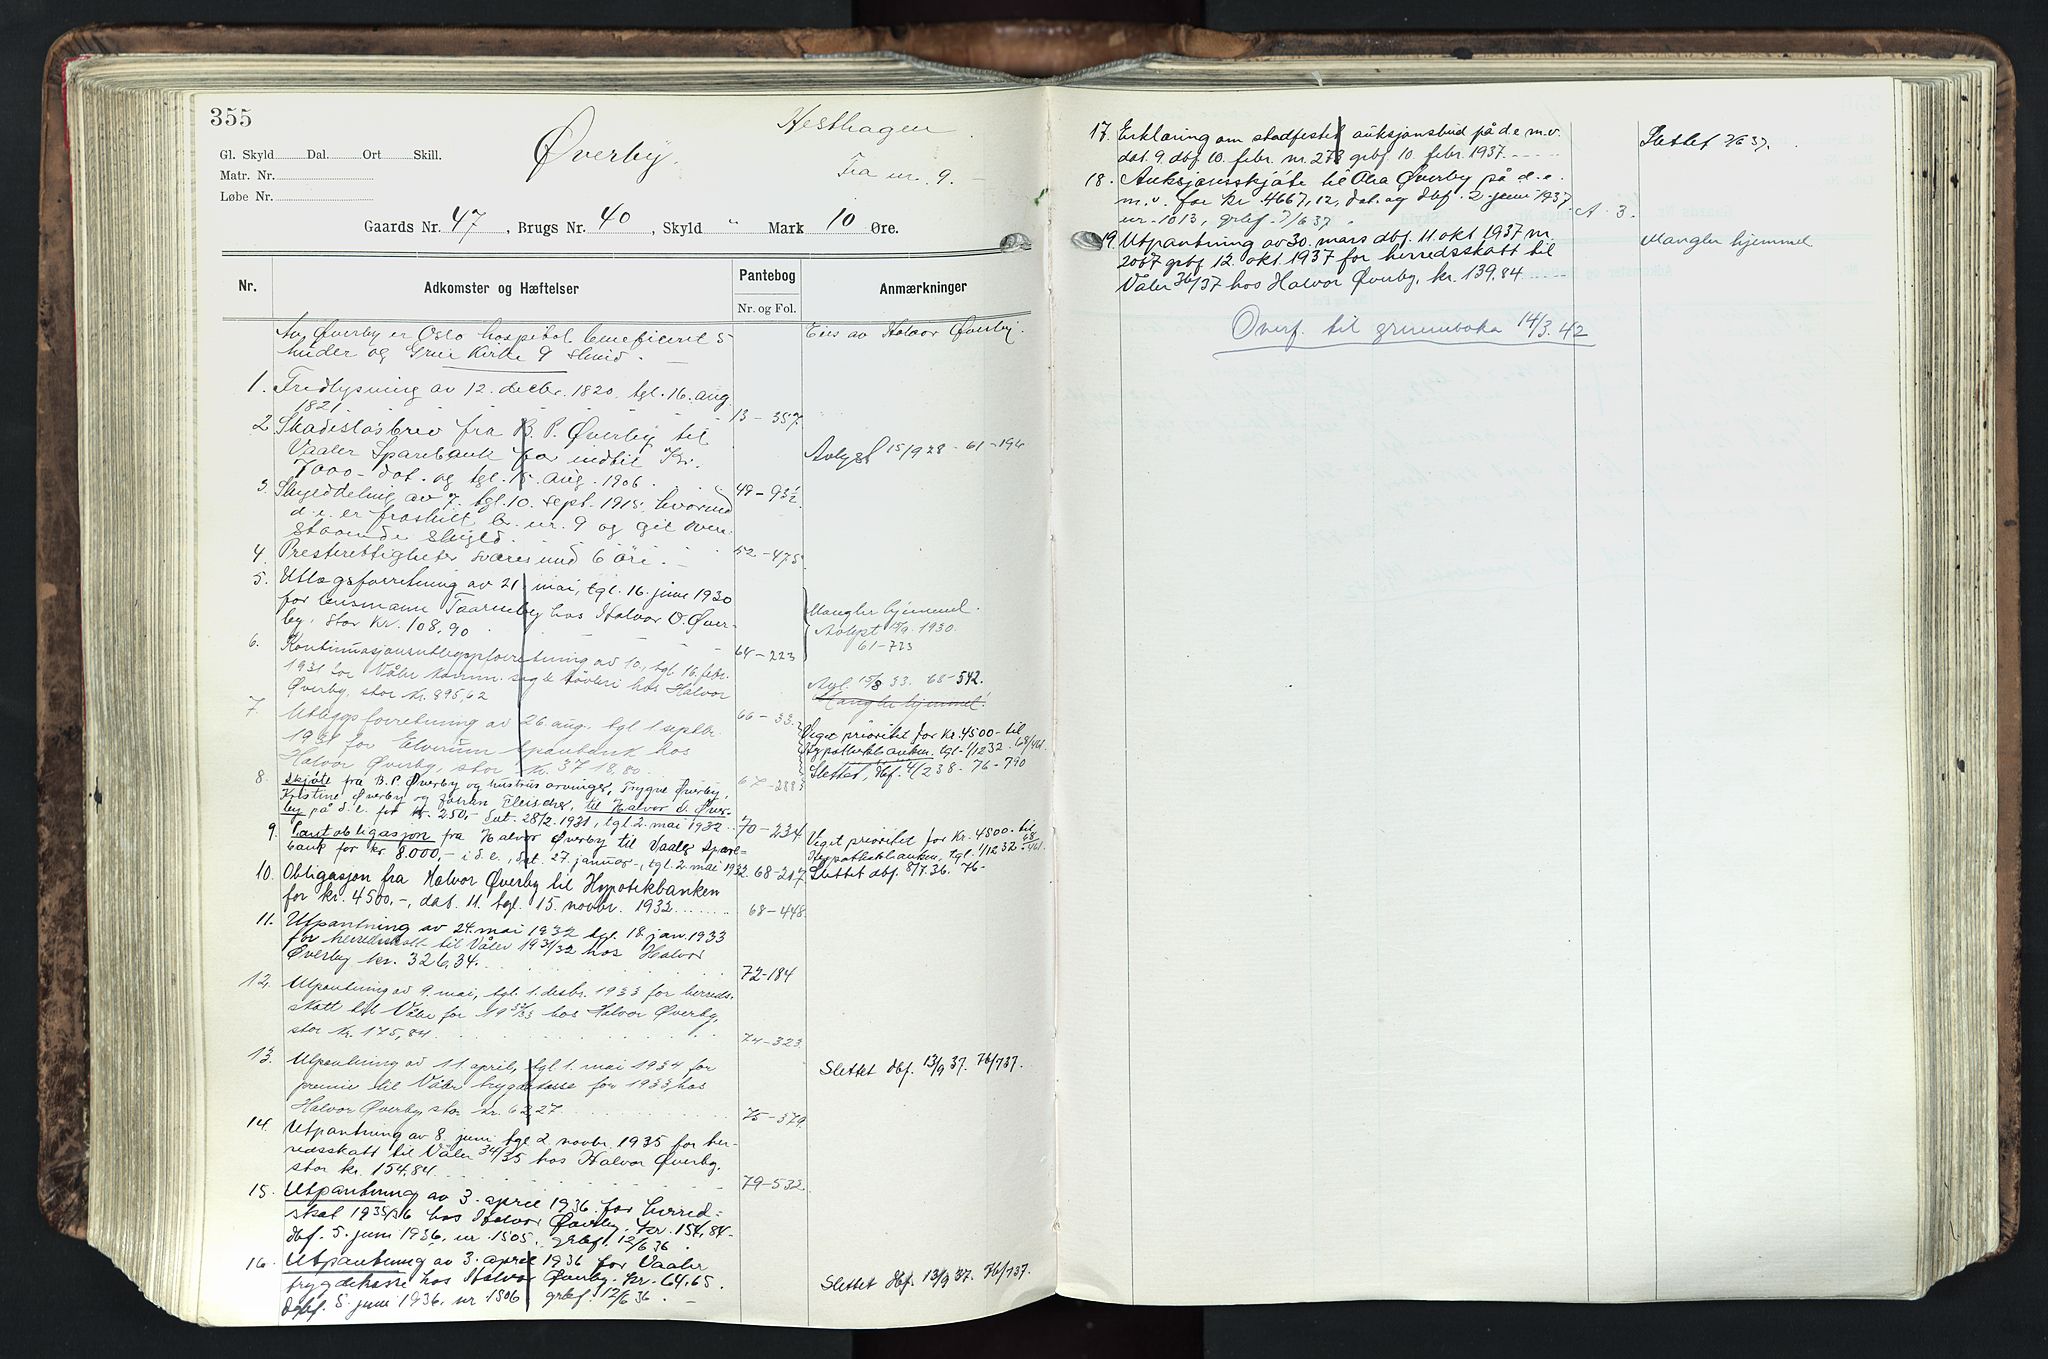 355
Hesthagen.
Gl. Skyld Dal. Ort Skill.
Øverby.
Matr. Nr.
Fra nr. 9. -
Løbe Nr.
Gaards Nr. 47, Brugs Nr. 40, Skyld " Mark 10 Øre.
Nr. Adkomster og Hæftelser Pantebog Anmærkninger
Nr. og Fol.
Av Øverby er Oslo hospital beneficeret 5 Eies av Halvor Øverby.
huder og Grue Kirke 9 skind.
1. Fredlysning av 12. decbr. 1820, tgl. 16. aug.
1821 13 - 357
2. Skadesløsbrev fra B. P. Øverby til
Vaaler Sparebank for indtil Kr. Avlyst 15/9 28 - 61 - 194
7000 - dat. og tgl. 15. aug. 1906. 49 - 93½
3. Skylddeling av 7. tgl. 10. sept. 1915, hvorved
d. e. er fraskilt br. nr. 9 og git oven-
staaende skyld. 52 - 475
4. Presterettigheter svares med 6 øre.
5. Utlægsforretning av 21. mai, tgl. 16. juni 1930
for lensmann Taarneby hos Halvor O. Øver- Mangler hjemmel.
by, stor Kr. 108,90 Avlyst 15/9. 1930.
64 - 223 61 - 723
6. Kontinuasjonsutleggsforretning av 10., tgl. 16. febr.
1931 for Våler komm. hos Halvor Avl. 15/8 33. 68 - 542.
Øverby, stor kr. 895,62 66 - 33. Mangler hjemmel!
7. Utleggsforretning av 26. aug. tgl. 1. septbr. Veget prioritet for Kr. 4500 - til
1931 for Elverum Sparebank hos Hypothekbanken, tgl. 1/12 32. 68/461.
Halvor Øverby, stor kr. 3718,80. 67 - 288 Slettet, dbf. 4/2 38 - 76 - 790
8. Skjøte fra B. P. Øverby og hustrus arvinger, Trygve Øverby,
Kristine Øverby og Fleischer, til Halvor O. Øver-
by på d. e. for kr. 250,- dat. 28/2. 1931, tgl. 2. mai 1932. 70 - 234
9. Pantobligasjon fra Halvor Øverby til Vaaler Spare- Veget prioritet for Kr. 4500 - til
bank for kr. 8.000,- i d. e., dat. 27. januar -, tgl. 2. mai 1932. 68 - 217 Hypothekbanken, tgl. 1/12 32 68 - 461.
10. Obligasjon fra Halvor Øverby til Hypotekbanken Slettet dbf. 8/7. 36. 76 -
for kr. 4500,-, dat. 11. tgl. 15. novbr. 1932 68 - 448
11. Utpantning av 24. mai 1932 tgl. 18. jan. 1933
for herredsskatt til Våler 1931/32 hos Halvor
Øverby kr. 326,34. 72 - 184
12. Utpantning av 9. mai, tgl. 1. desbr. 1933 for herreds-
skatt til Våler for 1932/33 hos Halvor Øverby,
stor kr. 175,84. 74 - 323
13. Utpantning av 11. april, tgl. 1. mai 1934 for Slettet dbf. 13/9 37. 76/737.
premie til Våler trygdekasse for 1933 hos
Halvor Øverby, stor kr. 62,27 75 - 379
14. Utpantning av 8. juni tgl. 2. novbr. 1935 for her-
redsskatt til Våler 34/35 hos Halvor Øverby,
stor kr. 154,84. 79 - 532
15. Utpantning av 3. april 1936 for herred-
skat 1935/36 hos Halvor Øverby. Kr. 154,84 -
dbf. 5. juni 1936, nr. 1505. grbf. 12/6 36.
16. Utpantning av 3. april 1936 for Vaaler
trygdekasse hos Halvor Øverby. kr. 64,65. Slettet dbf. 13/9 37. 76/737.
dbf. 5. juni 1936, nr. 1506. grbf. 12/6 36. -
17. Erklæring om stadfestet auksjonsbud på d. e. m. v. Slettet 7/6 37.
dat. 9. dbf. 10. febr. nr. 278 grbf. 10. febr. 1937.
18. Auksjonsskjøte til Ola Øverby på d. e.
m. v. for kr. 4667,12, dat. og dbf. 2. juni 1937 A. 3.
nr. 1013, grbf. 7/6 37
19. Utpantning av 30. mars dbf. 11. okt 1937 nr. Mangler hjemmel
2067 grbf. 12. okt. 1937 for herredsskatt til
Våler 36/37 hos Halvor Øverby, kr. 139,84
Overf. til grunnboka 14/3. 42